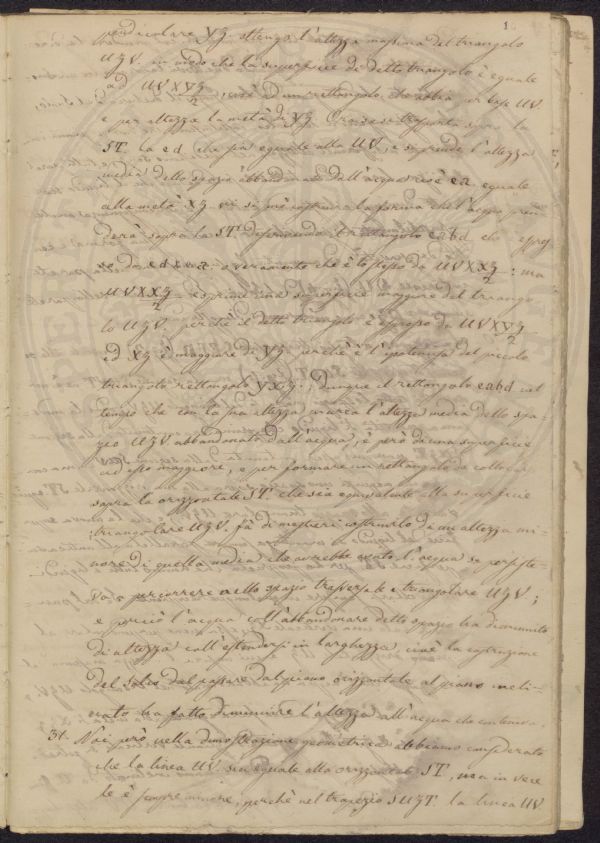 1
pendicolare Xg. ottengo l'altezza massima del triangolo
UgV. in modo che la superficie di detto triangolo è eguale
ad UVXVg/2, cioè ad un rettangolo, che abbia per base UV.
e per altezza la metà di Xg. Ora se si trasporta sopra la
ST. la ed. che sia eguale alla UV, e si prende l'altezza
media dello spazio abbandonato dall'acqua cioè ea. eguale
alla metà Xg. si può costruire la forma che l'acqua pren
derà sopra la ST. descrivendo il rettangolo eabd. che
da ed x ea. o veramente che è lo stesso da UVXXg/2: ma
UVXXg/2 esprime una superficie maggiore del triango
lo UgV. perchè il detto triangolo è espresso da UVXVg/2
ed Xg è maggiore di Yg perchè è l'ipotenusa del piccolo
triangolo rettangolo YXg. Dunque il rettangolo eabd nel
tempo che con la sua altezza marca l'altezza media dello spa-
zio UgV abbandonato dall'acqua, è però di una superficie
ad esso maggiore, e per formare un rettangolo da collocar
sopra la orizzontale ST. che sia equivalente alla superficie
triangolare UgV. fà di mestieri costruirlo di un'altezza mi-
nore di quella media che avrebbe avuto l'acqua se persiste-
va a percorrere nello spazio trasversale e triangolare UgV;
e perciò l'acqua coll'abbandonare detto spazio ha diminuito
di altezza coll'estendersi in larghezza, cioè la costruzione
del solco dal passare dal piano orizzontale al piano incli-
nato ha fatto diminuire l'altezza all'acqua che conteneva.
31. Noi però nella dimostrazione geometrica abbiamo considerato
che la linea UV. sia eguale alla orizzontale ST, ma in vece
le è sempre minore, perchè nel trapezio SUgT. la linea UV